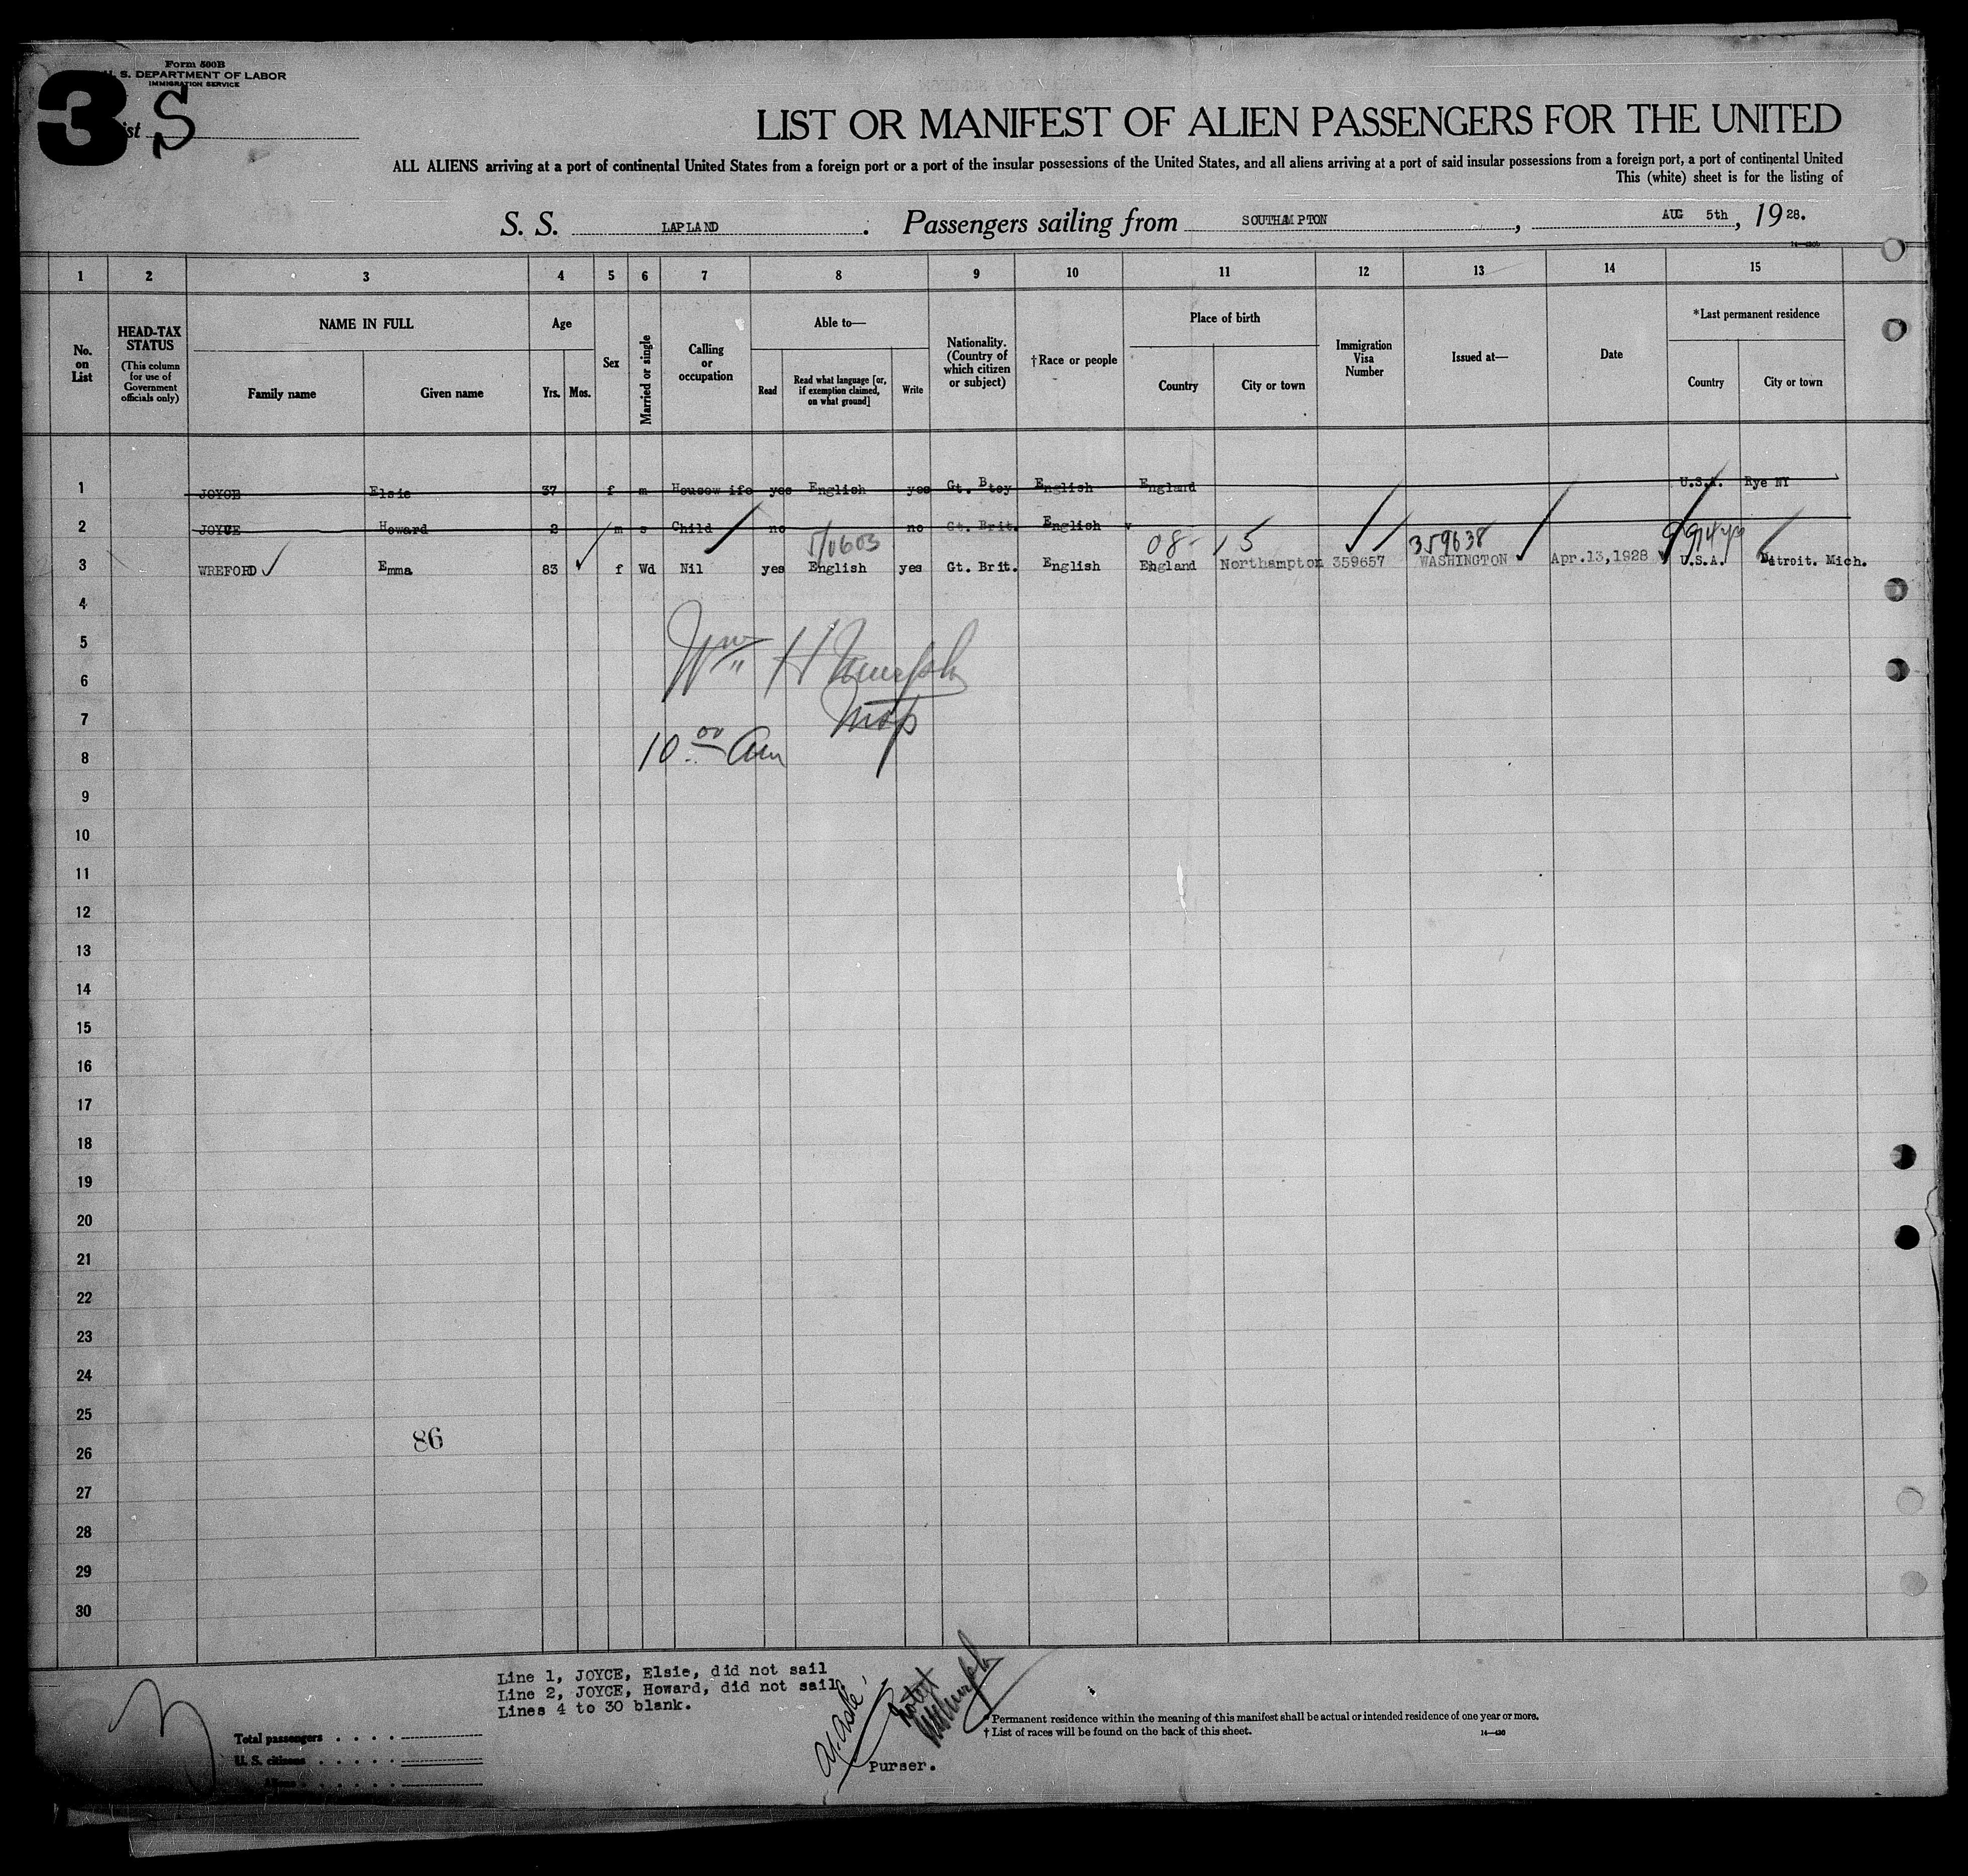 Form 500B
U. S. DEPARTMENT OF LABOR
IMMIGRATION SERVICE
3
List S
LIST OR MANIFEST OF ALIEN PASSENGERS FOR THE UNITED
ALL ALIENS arriving at a port of continental United States from a foreign port or a port of the insular possessions of the United States, and all aliens arriving at a port of said insular possessions from a foreign port, a port of continental United
This (white) sheet is for the listing of
S. S. LAPLAND. Passengers sailing from SOUTHAMPTON, AUG 5th, 1928.
1 2 3 4 5 6 7 8 9 10 11 12 13 14 15
No. on List
HEAD-TAX STATUS
(This column for use of Government officials only)
NAME IN FULL
Family name Given name
Age
Yrs. Mos.
Sex
Married or single
Calling or occupation
Able to—
Read
Read what language [or, if exemption claimed, on what ground]
Write
Nationality. (Country of which citizen or subject)
†Race or people
Place of birth
Country City or town
Immigration Visa Number
Issued at—
Date
*Last permanent residence
Country City or town
1 JOYCE Elsie 37 f m Housewife yes English yes Gt. English England U.S.A. Rye NY
2 JOYCE Howard 2 m s Child no no Gt. Brit. English
359638
3 WREFORD Emma 83 f Wd Nil yes English yes Gt. Brit. English England Northampton 359657 WASHINGTON Apr.13,1928 U.S.A. Detroit. Mich.
4
5
6
7
8
Wm H Murphy
10 00 am
9
10
11
12
13
14
15
16
17
18
19
20
21
22
23
24
25
86
26
27
28
29
30
Line 1, JOYCE, Elsie, did not sail
Line 2, JOYCE, Howard, did not sail.
Lines 4 to 30 blank.
Total passengers
U. S. citizens
Aliens
Purser.
* Permanent residence within the meaning of this manifest shall be actual or intended residence of one year or more.
† List of races will be found on the back of this sheet.
14—430